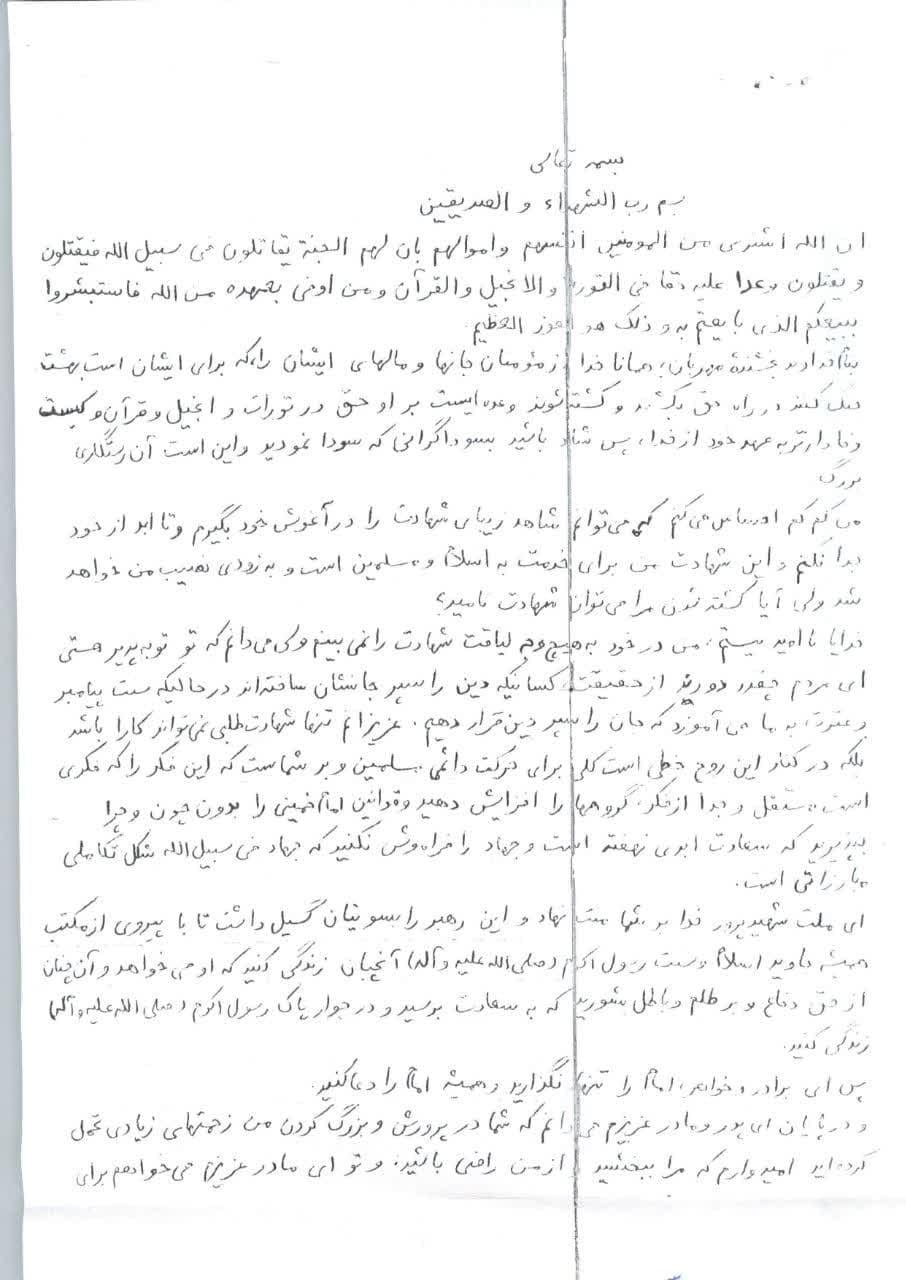 بسمه تعالی
بسم رب الشهداء و الصدیقین
ان الله اشتری من المومنین انفسهم و اموالهم بان لهم الجنة یقاتلون فی سبیل الله فیقتلون
و یقتلون وعدا علیه حقا فی التوریة والانجیل والقرآن و من اوفی بعهده من الله فاستبشروا
ببیعکم الذی بایعتم به و ذلک هو الفوز العظیم.
بنام خداوند بخشندهٔ مهربان، همانا خدا از مؤمنان جانها و مالهای ایشان را، که برای ایشان است بهشت
جنگ کنند در راه حق بکشند و کشته شوند وعده ایست بر او حق در تورات و انجیل و قرآن و کیست
وفادارتر به عهد خود از خدا، پس شاد باشید بسوداگرانی که سودا نمودید و این است آن رستگاری
بزرگ
من کم کم احساس می‌کنم که می‌توانم شاهد زیبای شهادت را در آغوش خود بگیرم و تا ابد از خود
جدا نکنم و این شهادت من برای خدمت به اسلام و مسلمین است و به زودی نصیب من خواهد
شد ولی آیا کشته شدن مرا می‌توان شهادت نامید؟
خدایا ناامید نیستم، من در خود به هیچ وجه لیاقت شهادت را نمی‌بینم ولی می‌دانم که تو توبه پذیر هستی
ای مردم چقدر دورند از حقیقت، کسانیکه دین را سپر جانشان ساخته‌اند در حالیکه سنت پیامبر
و عترت به ما می آموزد که جان را سپر دین قرار دهیم. عزیزانم تنها شهادت طلبی نمی‌تواند کارا باشد
بلکه در کنار این روح خطی است کلی برای حرکت دائمی مسلمین و بر شماست که این فکر را که فکری
است مستقل و جدا از فکر گروهها را افزایش دهید و قوانین امام خمینی را بدون چون و چرا
بپذیرید که سعادت ابدی نهفته است و جهاد را فراموش نکنید که جهاد فی سبیل الله شکل تکاملی
مبارزاتی است.
ای ملت شهیدپرور خدا بر شما منت نهاد و این رهبر را سویتان گسیل داشت تا با پیروی از مکتب
همیشه جاوید اسلام و سنت رسول اکرم (صلی الله علیه و آله) آنچنان زندگی کنید که او می خواهد و آن چنان
از حق دفاع و بر ظلم و باطل بشورید که به سعادت برسید و در جوار پاک رسول اکرم (صلی الله علیه و آله)
زندگی کنید.
پس ای برادر و خواهر، امام را تنها نگذارید و همیشه امام را دعا کنید.
و در پایان ای پدر و مادر عزیزم می دانم که شما در پرورش و بزرگ کردن من زحمتهای زیادی تحمل
کرده اید امیدوارم که مرا ببخشید و از من راضی باشید. و تو ای مادر عزیزم می خواهم برای